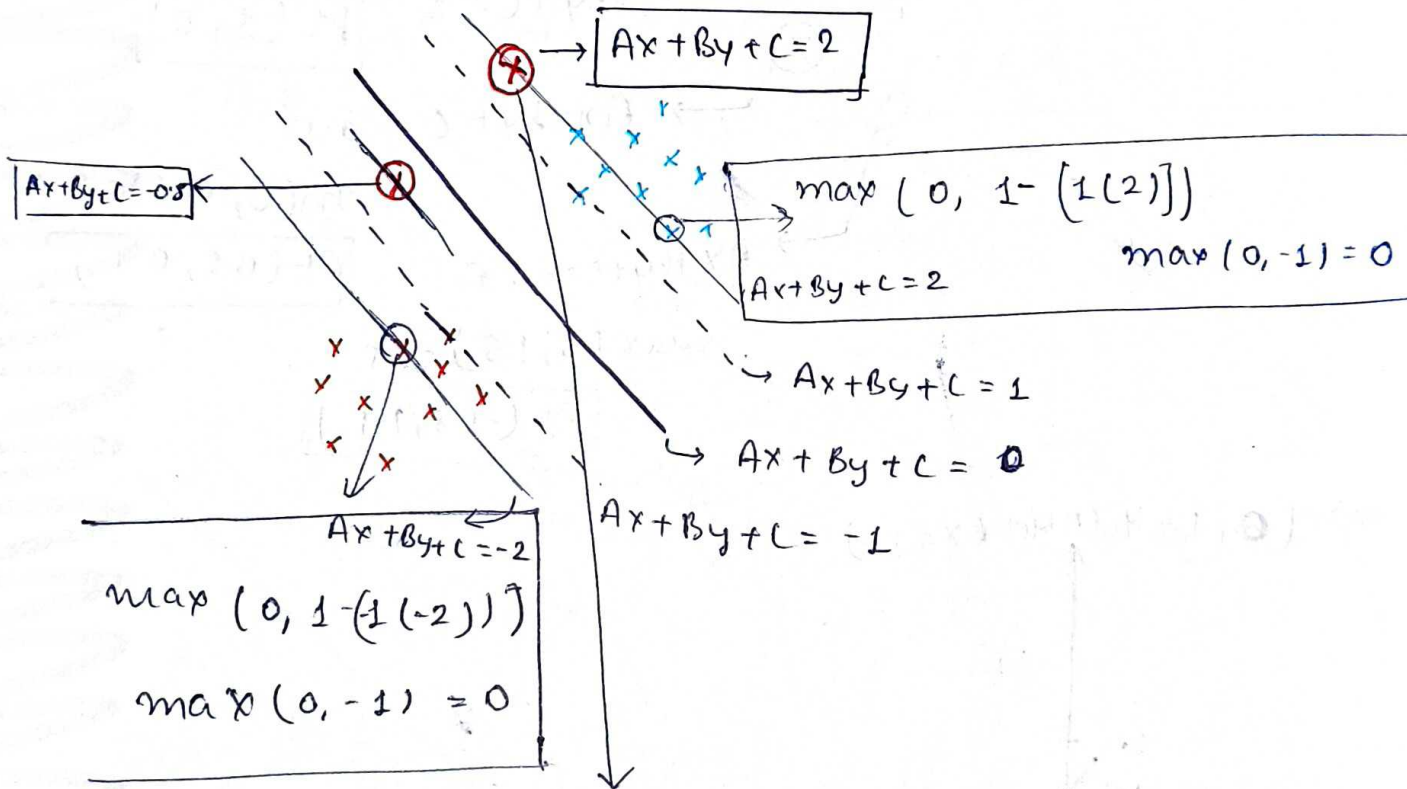 Ax + By + C = 2
Ax+By+C=-0.5
max (0, 1- (1(2)])
max (0, -1) = 0
Ax+By+C=2
Ax+By+C = 1
Ax + By + C = 0
Ax+By+C = -1
Ax+By+C=-2
max (0, 1-(1(-2))]
max (0, -1) = 0